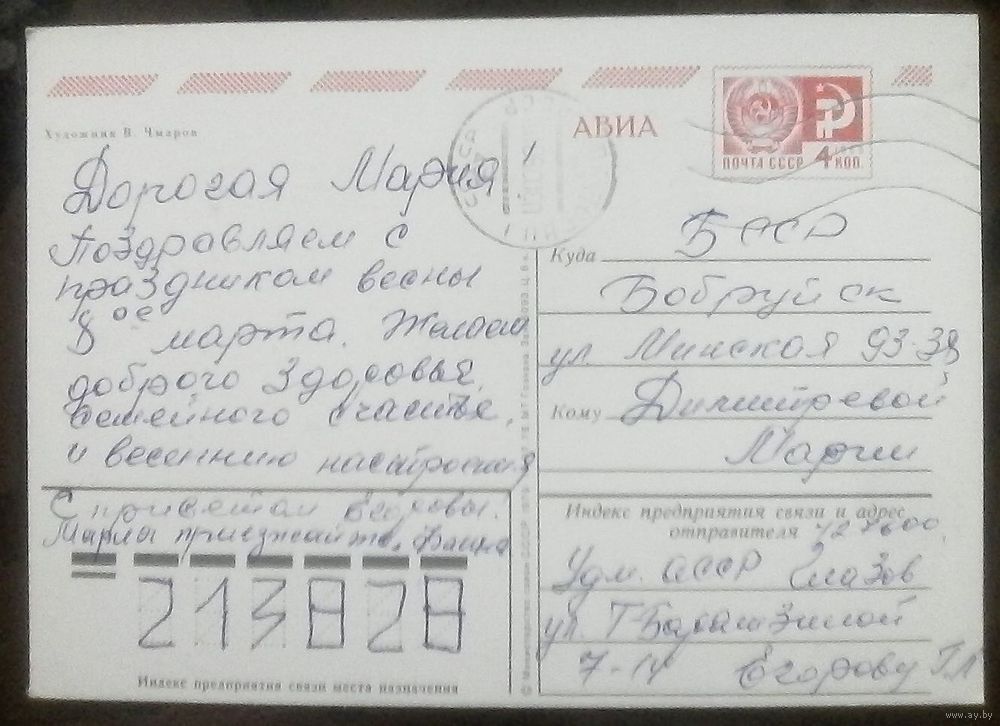 Художник В. Чмаров
АВИА
ПОЧТА СССР 4 КОП.
Дорогая Мария!
Поздравляем с
праздником весны
8ое марта. Желаем
доброго здоровья,
семейного счастья,
и весеннию настроения
С приветом Егоровы.
Мария приезжайте.
213828
Индекс предприятия связи места назначения
Куда БССР
Бобруйск
ул. Минская 93-38
Кому Димитревой
Марии
Индекс предприятия связи и адрес
отправителя 427600
Удм. АССР Глазов
ул. Т-Барамзиной
7-14 Егорову Г.П
www.ay.by